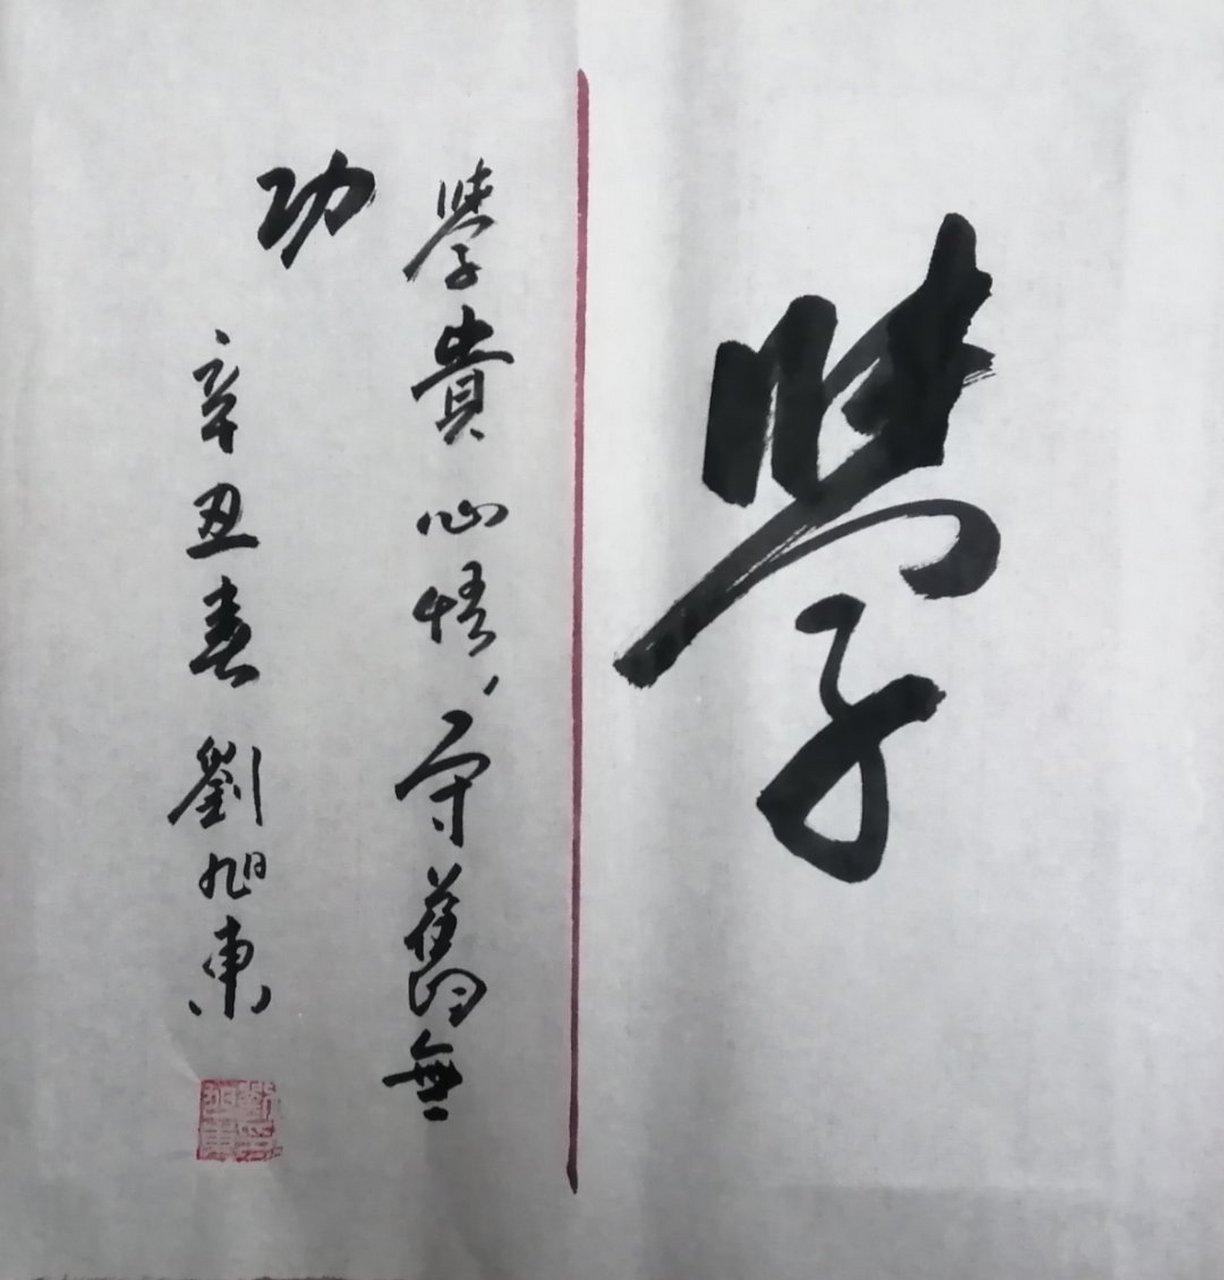 學
學貴心悟,守舊無
功
辛丑春 劉旭東